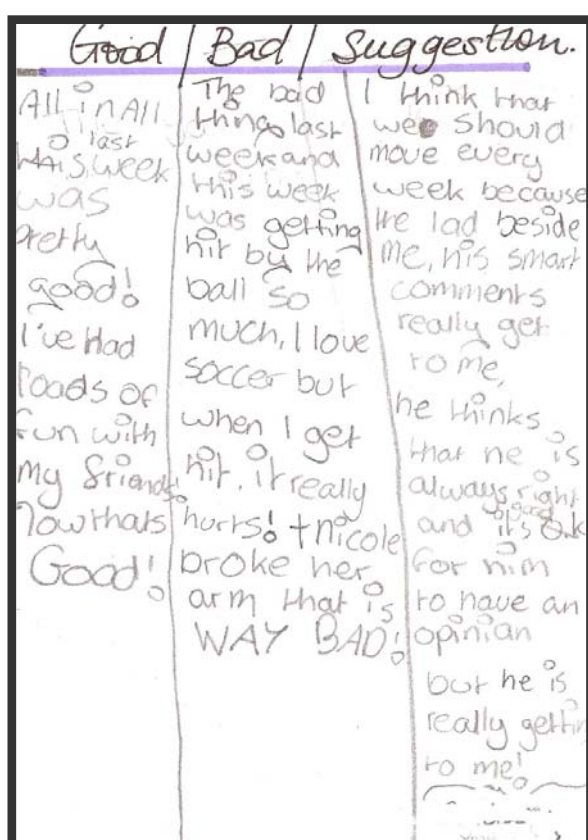 Good / Bad / Suggestion.
All in All
last
this week
was
pretty
good!
I've Had
loads of
fun with
my friends!
Now thats
Good!
The bad
things last
week and
this week
was getting
hit by the
ball so
much, I love
soccer but
when I get
hit, it really
hurts! + nicole
broke her
arm that is
WAY BAD!
I think that
we should
move every
week because
the lad beside
me, his smart
comments
really get
to me,
he thinks
that he is
always right
and it's o.k
for him
to have an
opinian
but he is
really gettin
to me!